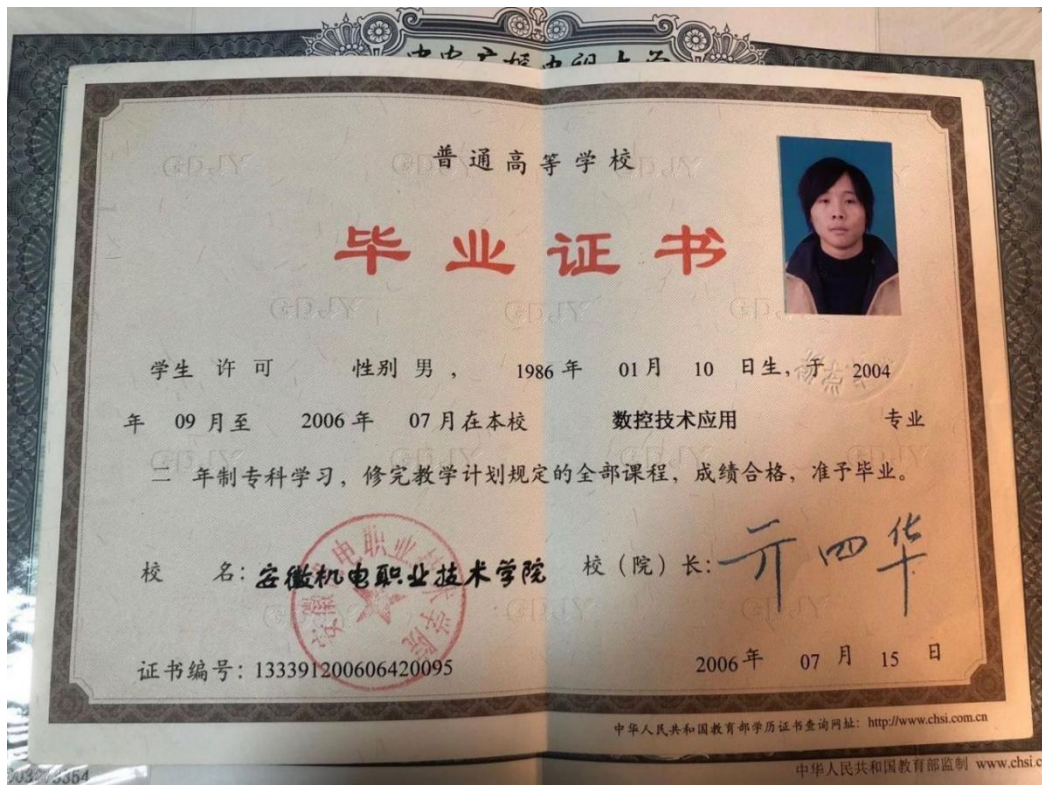 中央广播电视大学
普通高等学校
毕业证书
学生 许可 性别 男 , 1986 年 01 月 10 日生, 于 2004
年 09 月至 2006 年 07 月在本校 数控技术应用 专业
二 年制专科学习, 修完教学计划规定的全部课程, 成绩合格, 准予毕业。
校 名: 安徽机电职业技术学院 校（院）长:
安徽机电职业技术学院
证书编号: 133391200606420095 2006 年 07 月 15 日
中华人民共和国教育部学历证书查询网址: http://www.chsi.com.cn
中华人民共和国教育部监制 www.chsi.c
GDJY